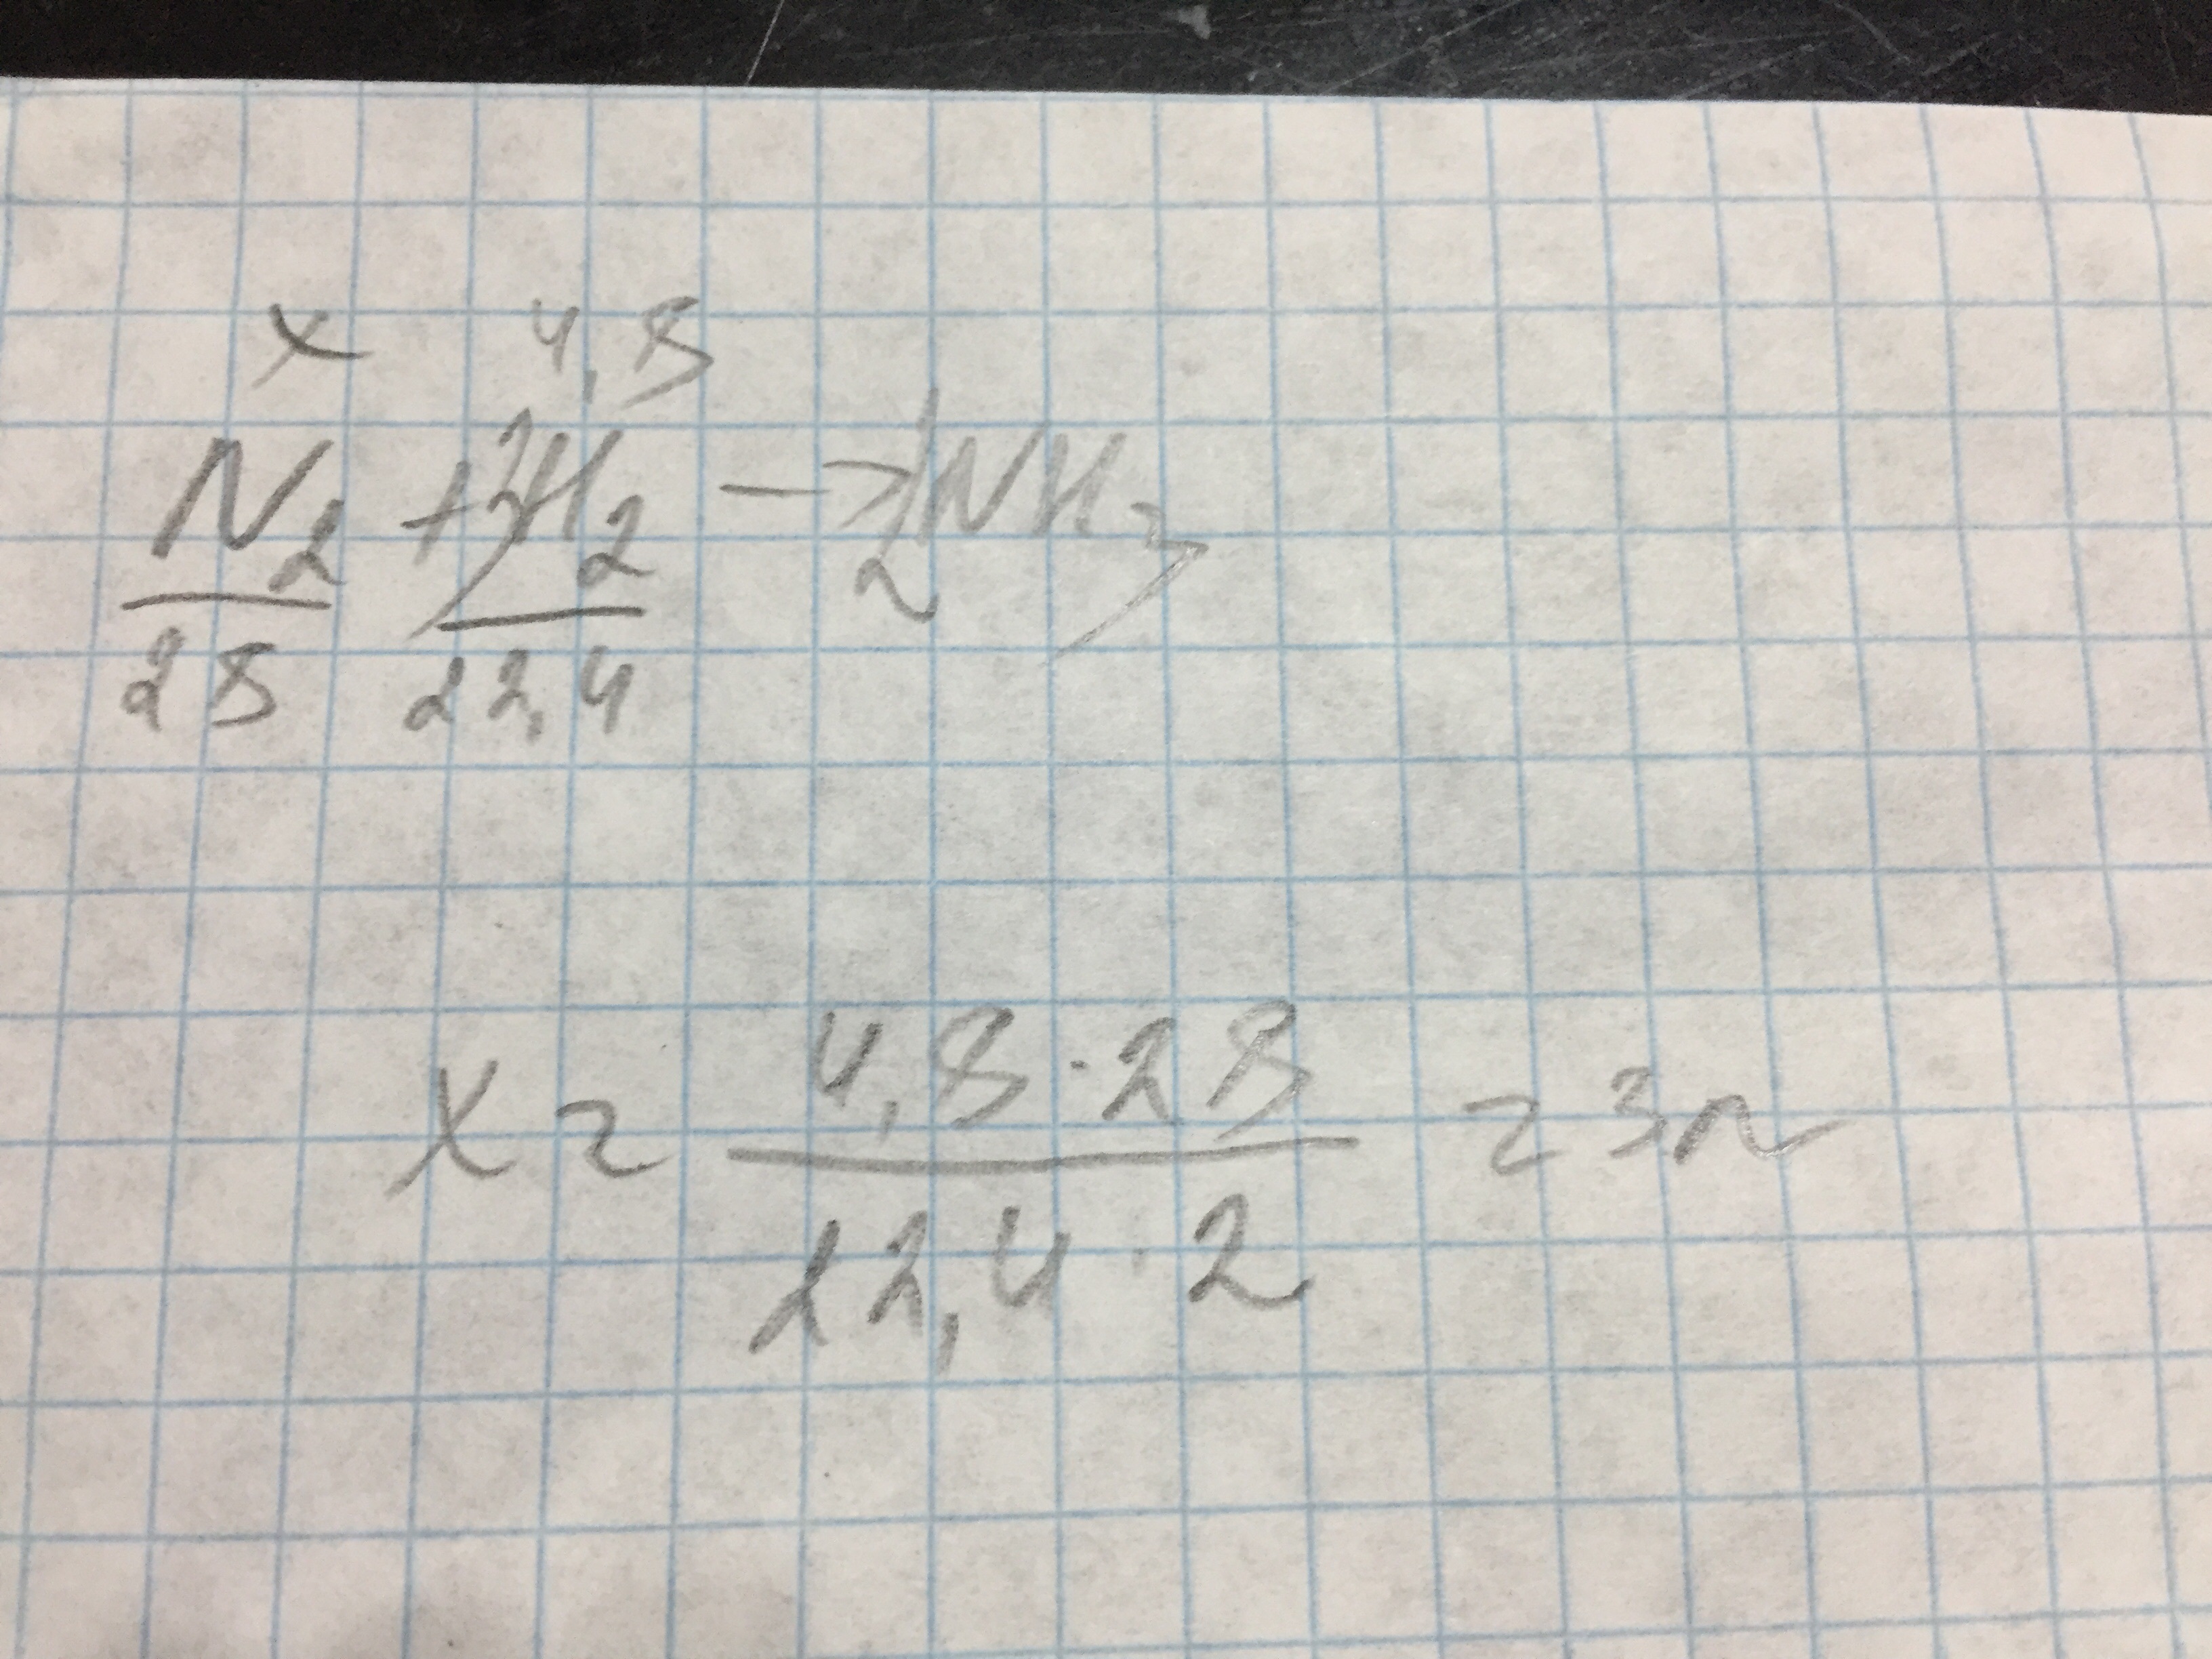 x 4,8
N2 + 3H2 → 2NH3
28 22,4
x = 4,8 · 28 = 3л
22,4 · 2